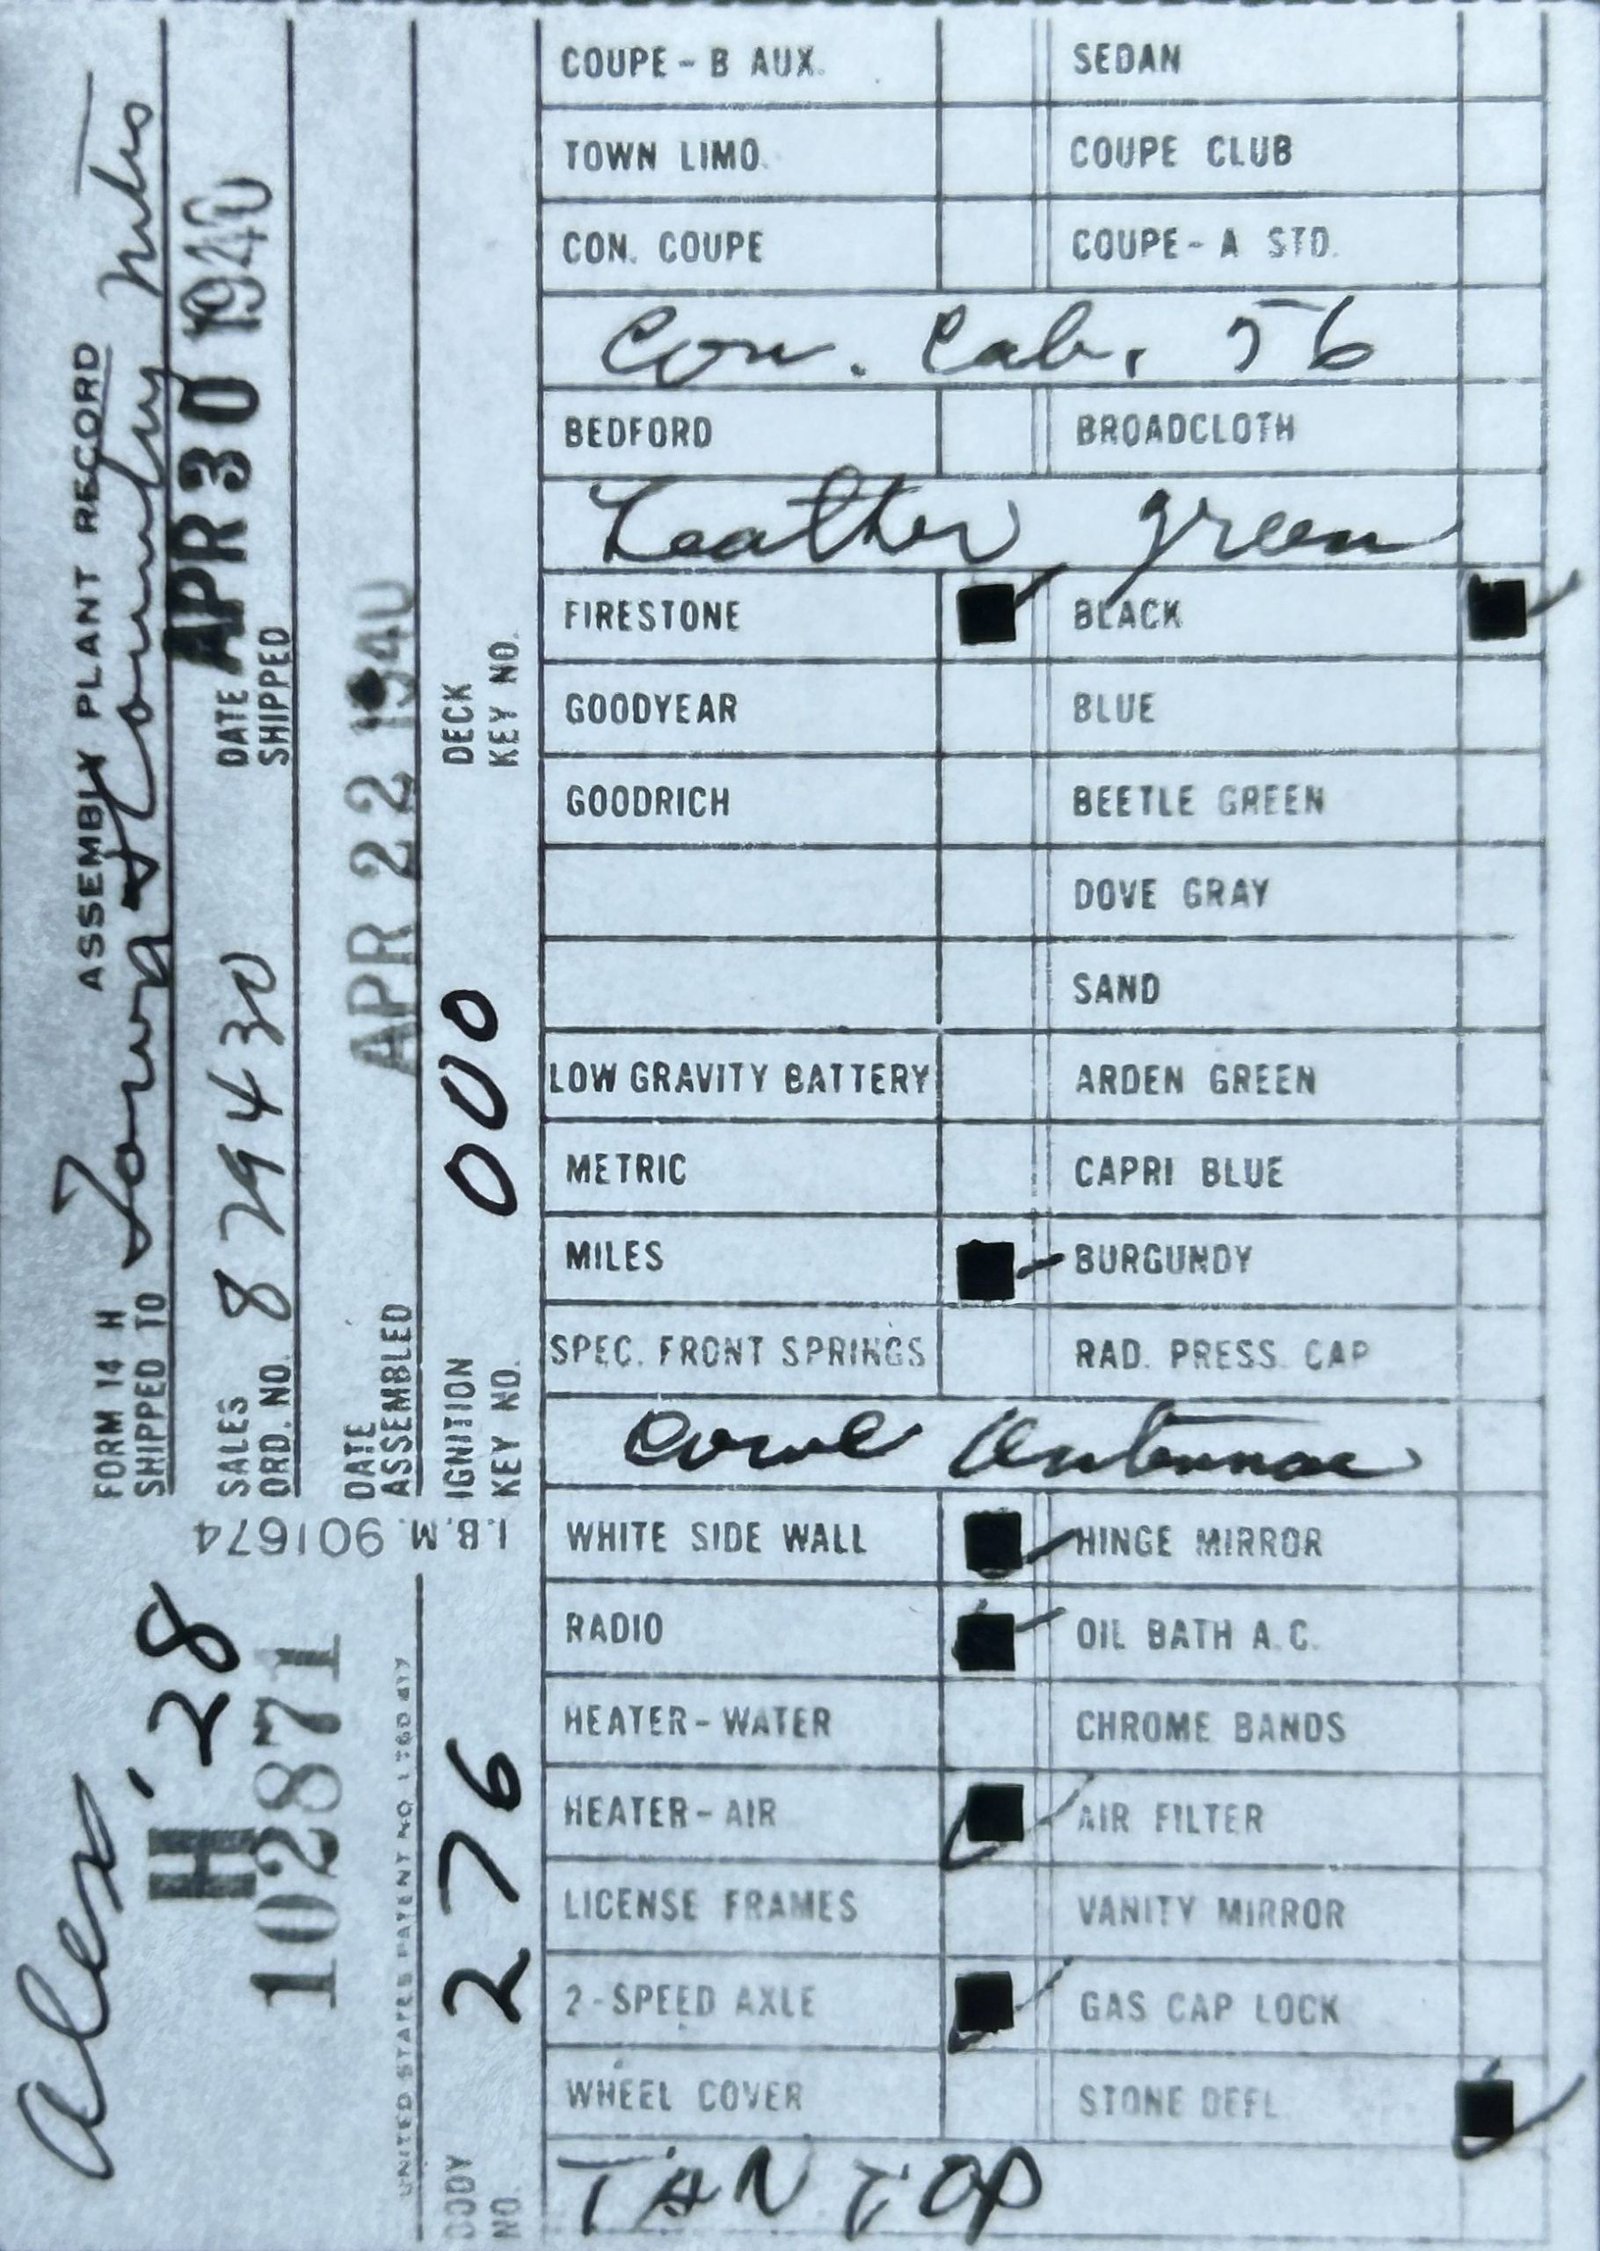 FORM 14 H ASSEMBLY PLANT RECORD
SHIPPED TO
SALES ORD. NO. 8 79430
DATE SHIPPED APR 30 1940
DATE ASSEMBLED APR 22 1940
IGNITION KEY NO. 000
DECK KEY NO.
I.B.M. 901674
Alex, 28
H
102871
UNITED STATES PATENT NO.
BODY NO. 276
COUPE - B AUX. SEDAN
TOWN LIMO. COUPE CLUB
CON. COUPE COUPE - A STD.
Con. Cab. 56
BEDFORD BROADCLOTH
Leather green
FIRESTONE BLACK
GOODYEAR BLUE
GOODRICH BEETLE GREEN
DOVE GRAY
SAND
LOW GRAVITY BATTERY ARDEN GREEN
METRIC CAPRI BLUE
MILES BURGUNDY
SPEC. FRONT SPRINGS RAD. PRESS. CAP
Cowl Antennae
WHITE SIDE WALL HINGE MIRROR
RADIO OIL BATH A.C.
HEATER - WATER CHROME BANDS
HEATER - AIR AIR FILTER
LICENSE FRAMES VANITY MIRROR
2 - SPEED AXLE GAS CAP LOCK
WHEEL COVER STONE DEFL.
TAN TOP